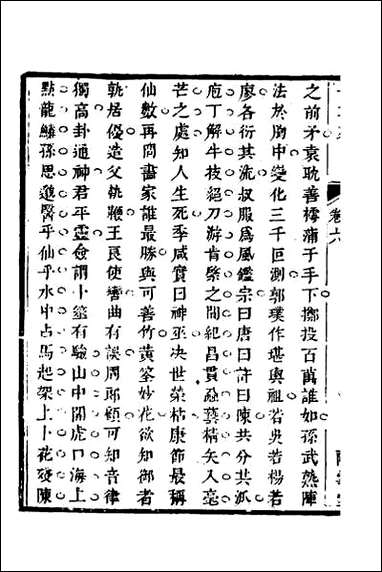 卷六
之前矛袁耽善樗蒲子手下擲投百萬誰如孫武熟陣
法於胸中變化三千叵測郭璞作堪輿祖若吳若楊若
廖各衍其流叔服爲風鑑宗曰唐曰許曰陳共分其派
庖丁解牛技絕刀游肯綮之間紀昌貫蝨藝精矢入毫
芒之處知人生死季咸實曰神巫决世榮枯康節最稱
仙數再問畫家誰最勝與可善竹黃筌妙花欲知御者
孰居優造父執鞭王良使轡曲有誤周郎顧可知音律
獨高卦通神君平靈僉謂卜筮有驗山中開虎口海上
㸃龍鱗孫思邈醫乎仙乎水中占馬起架上卜花發陳